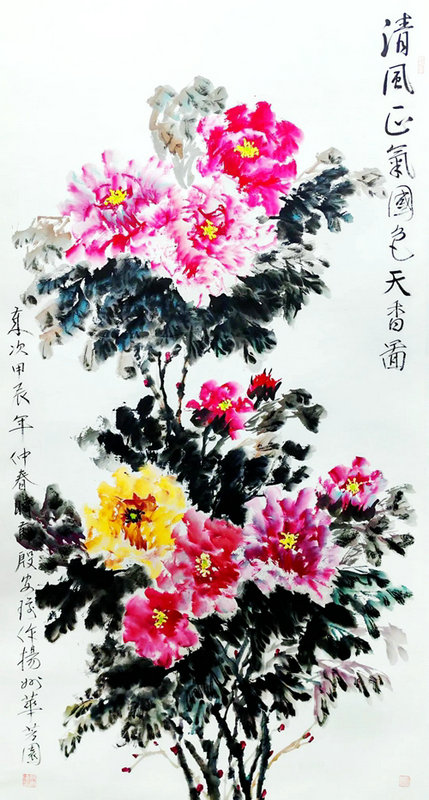 清風正氣國色天香圖
歲次甲辰年仲春殷作揚州華園